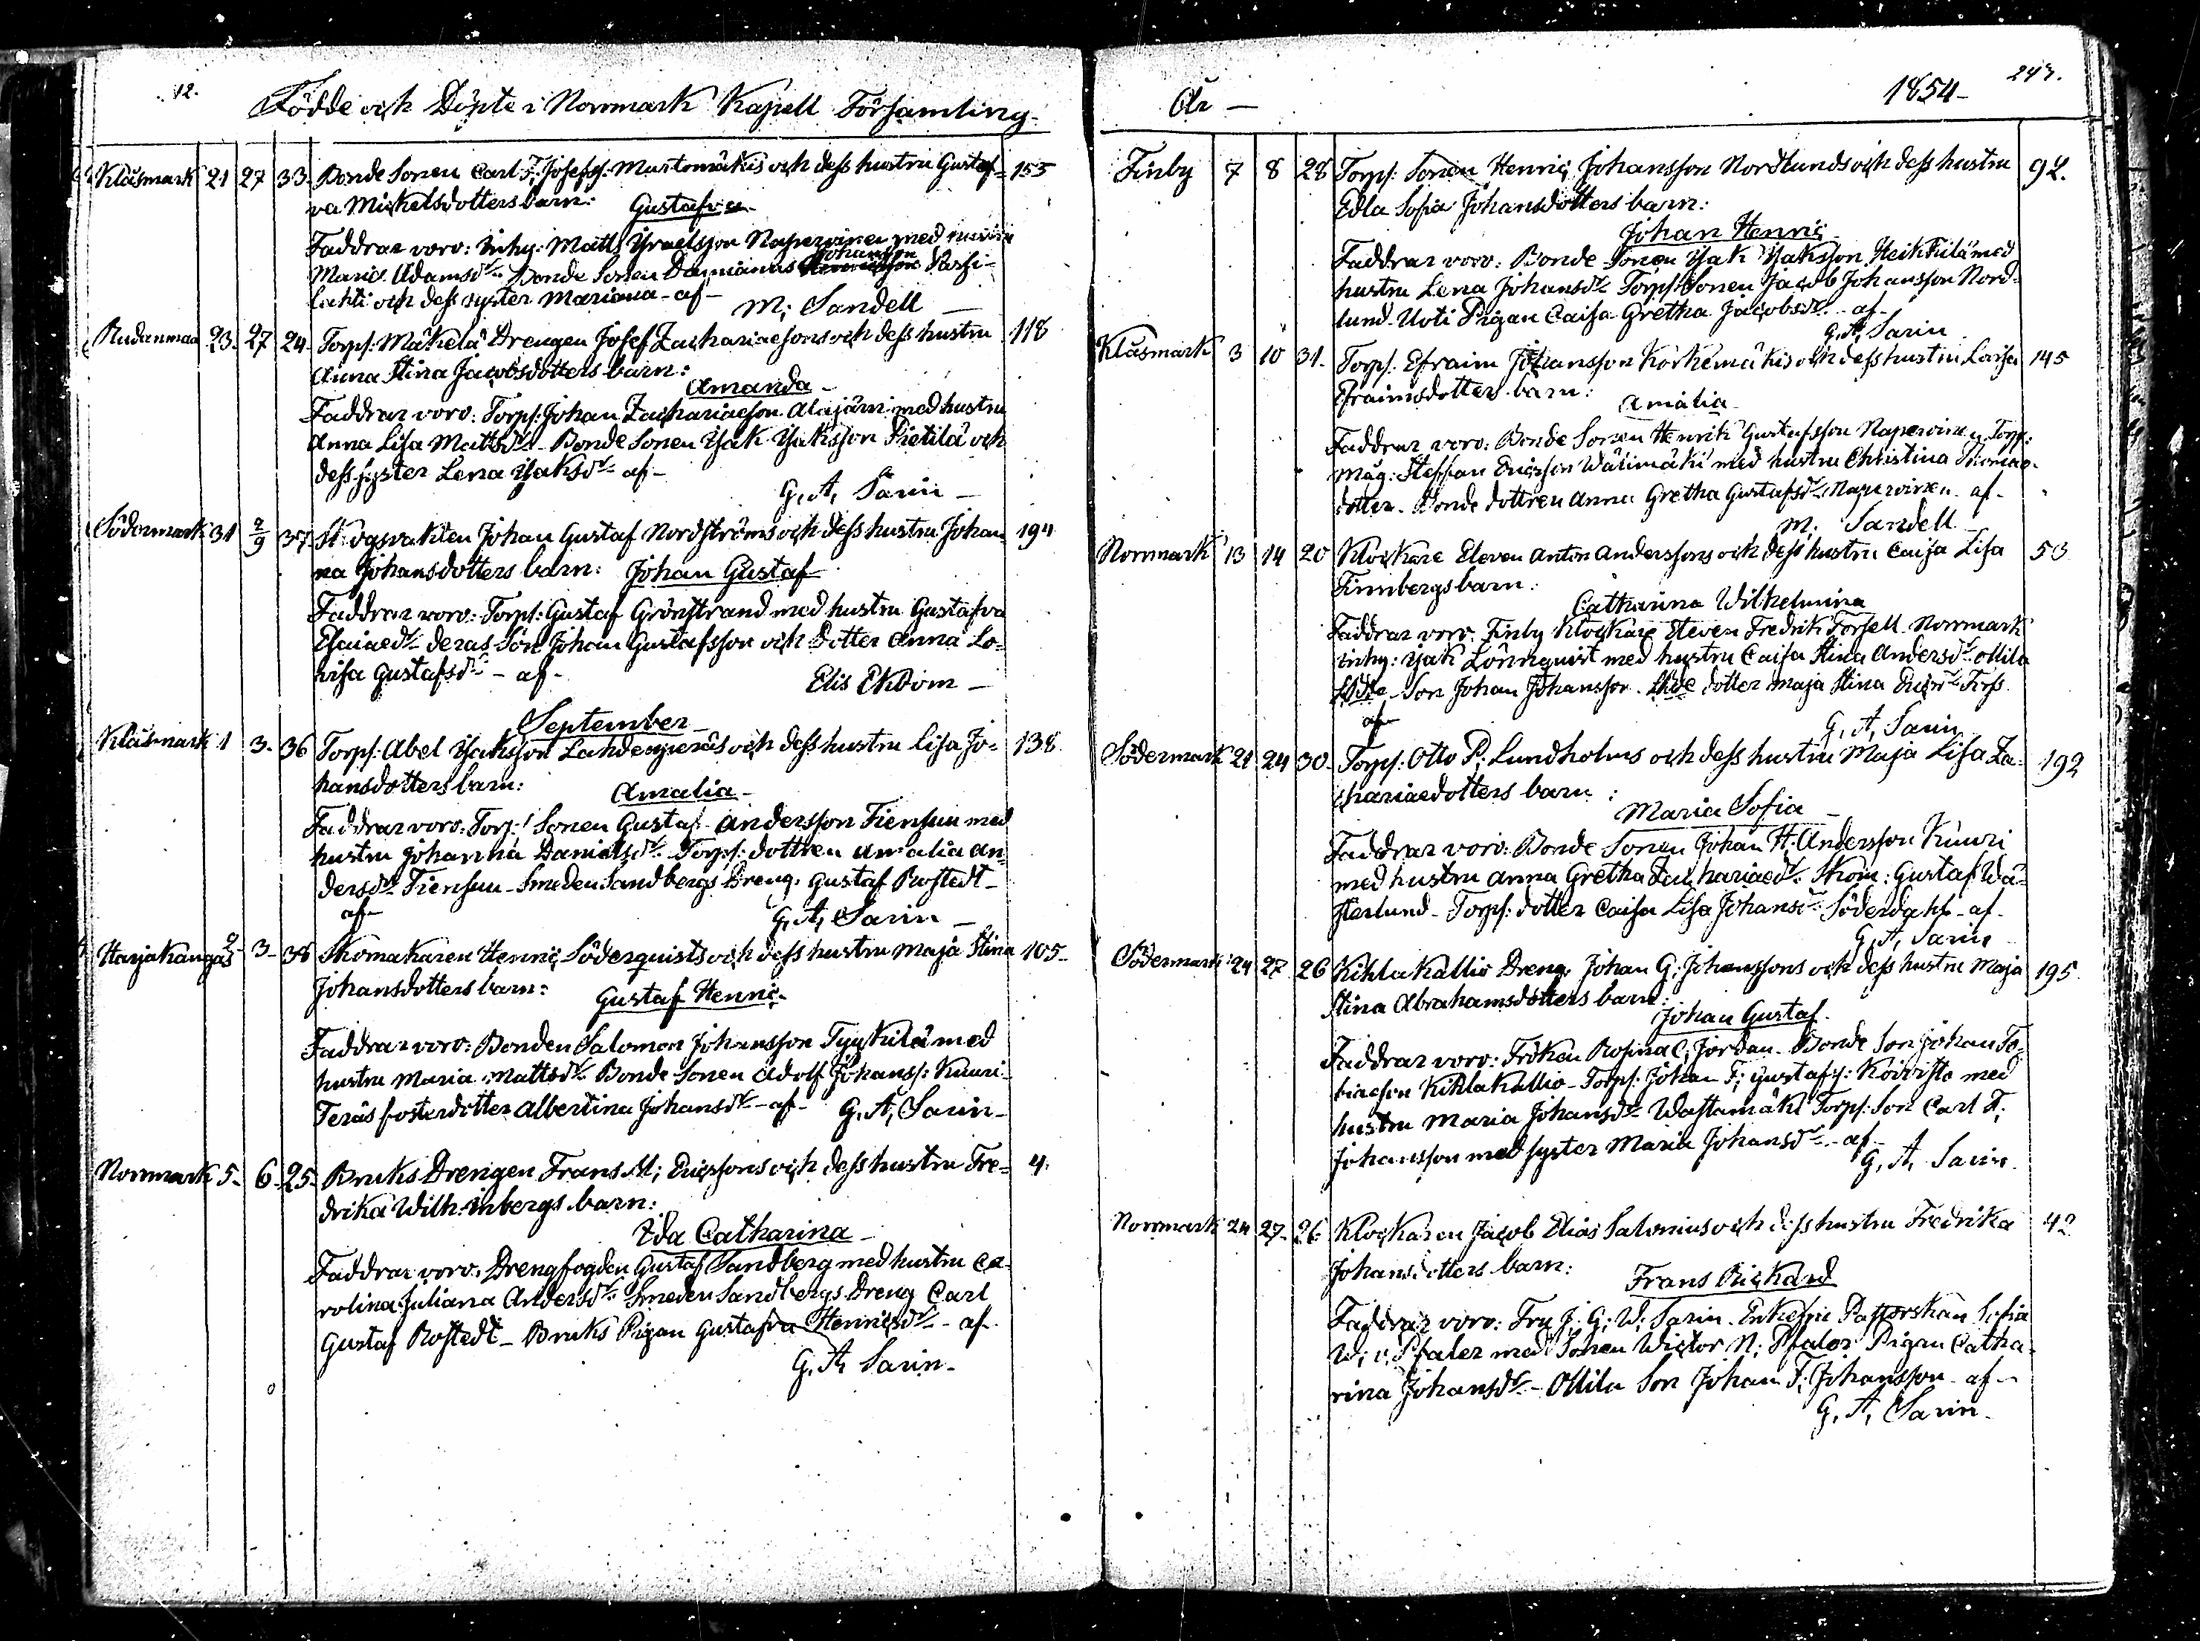 12.
Födde och Döpte i Norrmark Kapell Församling.
Klåsmark 21 27 33 Bonde Sonen Carl F. Josefss. Mustomäkis och dess hustru Gustaf= 155
va Mickelsdotters barn: Gustafva
Faddrar voro: Inhy: Matts Ysraelsson Napervinen med hustru
Maria Adamsdr. Bonde Sonen Damianus Johansson
lahti och dess syster Mariana - af -
M. Sandell
23 27 24 Torp: Mäkelä Drengen Josef Zachariaesons och dess hustru 118
Anna Stina Jacobsdotters barn:
Amanda -
Faddrar voro: Torp: Johan Zachariaeson Alajärvi med hustru
Anna Lisa Mattsdr. Bonde Sonen Isak Isaksson Pietilä och
dess syster Lena Isaksdr. af -
G. A. Sarin -
Södermark 31 2/9 37 Skogsvakten Johan Gustaf Nordströms och dess hustru Johan 194
na Johansdotters barn: Johan Gustaf
Faddrar voro: Torp: Gustaf Grönstrand med hustru Gustafva
Esaiaedr. deras Son Johan Gustafsson och Dotter Anna Lo=
visa Gustafsdr. - af -
Elis Ekbom -
September -
Klåsmark 1 3 36 Torp: Abel Isaksson Lahdenperäs och dess hustru Lisa Jo= 138
hansdotters barn:
Amalia -
Faddrar voro: Torp: Sonen Gustaf Andersson Tiensuu med
hustru Johanna Danielsdr. Torp: dottren Amalia An=
dersdr. Tiensuu - Smeden Sandbergs Dreng. Gustaf Rostedt -
af -
G. A. Sarin -
Harjakangas 2 3 38 Skomakaren Henric Söderquists och dess hustru Maja Stina 105
Johansdotters barn:
Gustaf Henric
Faddrar voro: Bonden Salomon Johansson Tyykilä med
hustru Maria Mattsdr. Bonde Sonen Adolf Johanss: Kuuri
Teräs fosterdotter Albertina Johansdr. - af - G. A. Sarin -
Norrmark 5 6 25 Bruks Drengen Frans M. Ericssons och dess hustru Fre= 4
drika Wilh. Inbergs barn:
Ida Catharina -
Faddrar voro: Drengfogden Gustaf Sandberg med hustru Ca=
rolina Juliana Andersdr. Smeden Sandbergs Dreng Carl
Gustaf Rostedt - Bruks Pigan Gustafva Henricsdr. - af -
G. A. Sarin -
År -
1854 -
247.
Finby 7 8 28 Torp: Sonen Henric Johansson Nordlunds och dess hustru 92.
Edla Sofia Johansdotters barn:
Johan Henric
Faddrar voro: Bonde Sonen Isak Isaksson Heikkilä med
hustru Lena Johansdr. Torp: Sonen Jacob Johansson Nord=
lund. Uoti Pigan Caisa Gretha Jacobsdr. - af -
G. A. Sarin
Klåsmark 3 10 31 Torp: Efraim Johansson Korkemäkis och dess hustru Lovisa 145
Efraimsdotters barn:
Amalia
Faddrar voro: Bonde Sonen Henrik Gustafsson Napervinen. Torp:
Måg: Steffan Ericsson Wälimäki med hustru Christina Thomae=
dotter. Bonde dottren Anna Gretha Gustafsdr. Napervinen. af -
M. Sandell -
Norrmark 13 14 20 Klockare Eleven Anton Anderssons och dess hustru Caisa Lisa 50
Finnbergs barn:
Catharina Wilhelmina
Faddrar voro: Finby Klockare Eleven Fredrik Forsell. Norrmark
inhy: Isak Lönnquist med hustru Caisa Stina Andersdr. Ollila
Son Johan Johansson. dotter Maja Stina Ericsdr.
af
G. A. Sarin
Södermark 21 24 30 Torp: Otto P. Lundholms och dess hustru Maja Lisa Za= 192
chariaedotters barn:
Maria Sofia -
Faddrar voro: Bonde Sonen Johan H. Andersson Kuuri
med hustru Anna Gretha Zachariaedr. Skom: Gustaf Wä=
sterlund - Torp: dotter Caisa Lisa Johansdr. Söderdahl - af -
G. A. Sarin
Södermark 24 27 26 Kihlakallio Dreng. Johan G. Johanssons och dess hustru Maja 195
Stina Abrahamsdotters barn:
Johan Gustaf
Faddrar voro: Fröken Rosina C. Jordan. Bonde Son Johan To=
biaeson Kihlakallio - Torp: Johan F. Gustafss: Koivisto med
hustru Maria Johansdr. Wastamäki Torp: Son Carl F.
Johansson med syster Maria Johansdr. - af -
G. A. Sarin
Norrmark 24 27 26 Klockaren Jacob Elias Salonius och dess hustru Fredrika 42
Johansdotters barn:
Frans Rickard
Faddrar voro: Fru J. G. W. Sarin. Enkefru Pastorskan Sofia
W. v. Pfaler med Sonen Wictor N. Pfaler Pigan Catha=
rina Johansdr. - Ollila Son Johan F. Johansson - af -
G. A. Sarin -